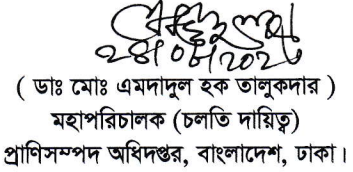 ( ডাঃ মোঃ এমদাদুল হক তালুকদার )
মহাপরিচালক (চলতি দায়িত্ব)
প্রাণিসম্পদ অধিদপ্তর, বাংলাদেশ, ঢাকা।